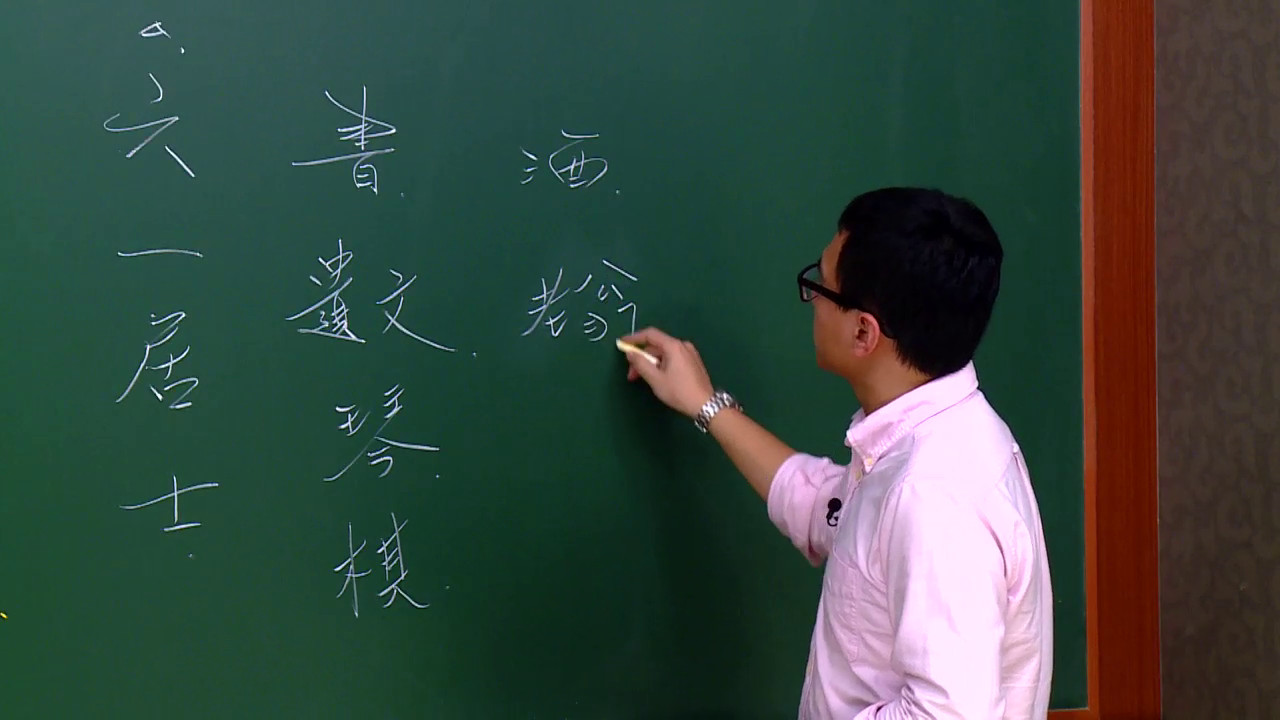 六一居士.
書.遺文.琴.棋.
酒.老翁